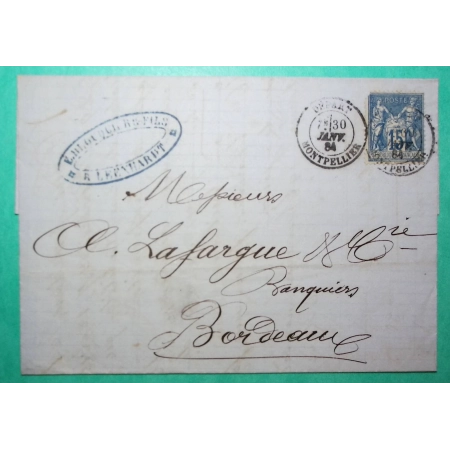 & LEENHARDT
DÉPART
30
JANV.
84
MONTPELLIER
POSTE
15
84
Messieurs
A. Lafargue & Cie
Banquiers
Bordeaux